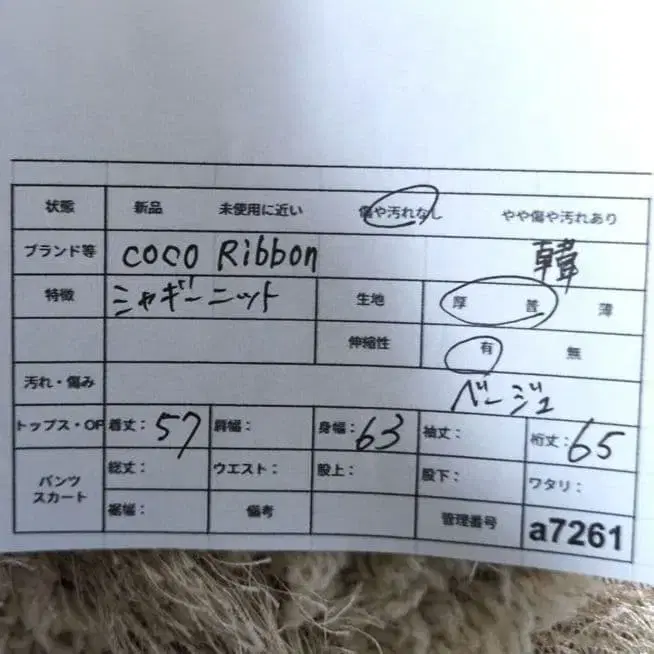 状態 新品 未使用に近い 傷や汚れなし やや傷や汚れあり
ブランド等 coco Ribbon 韓
特徴 シャギーニット 生地 厚 普 薄
伸縮性 有 無
汚れ・傷み ベージュ
トップス・OP 着丈: 57 肩幅: 身幅: 63 袖丈: 裄丈: 65
パンツ スカート 総丈: ウエスト: 股上: 股下: ワタリ:
裾幅: 備考 管理番号 a7261